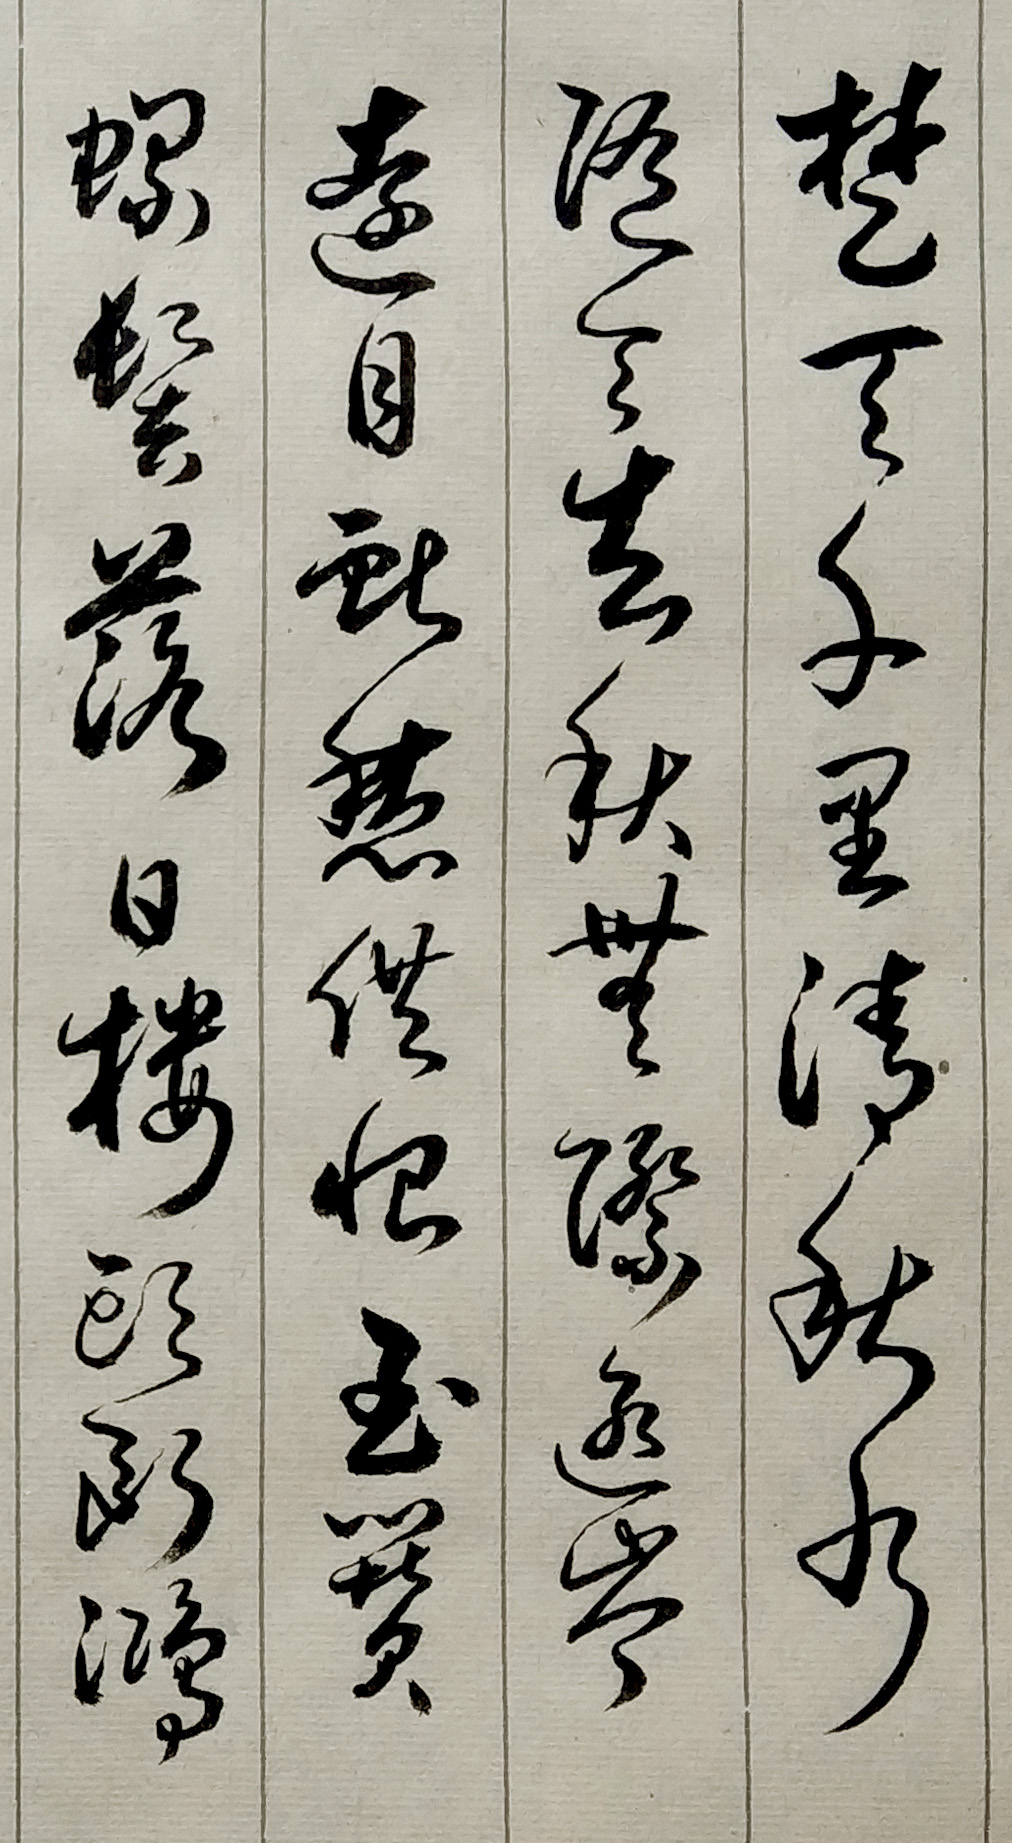 楚天千里清秋水
隨天去秋無際遙岑
遠目獻愁供恨玉簪
螺髻落日樓頭斷鴻